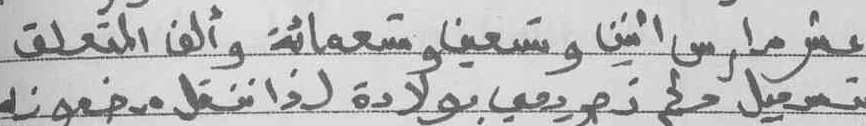 عشر مارس اثنين وتسعين وتسعمائة وألف المتعلق
تسجيل حكم تصريحي بولادة لذا ننتقل